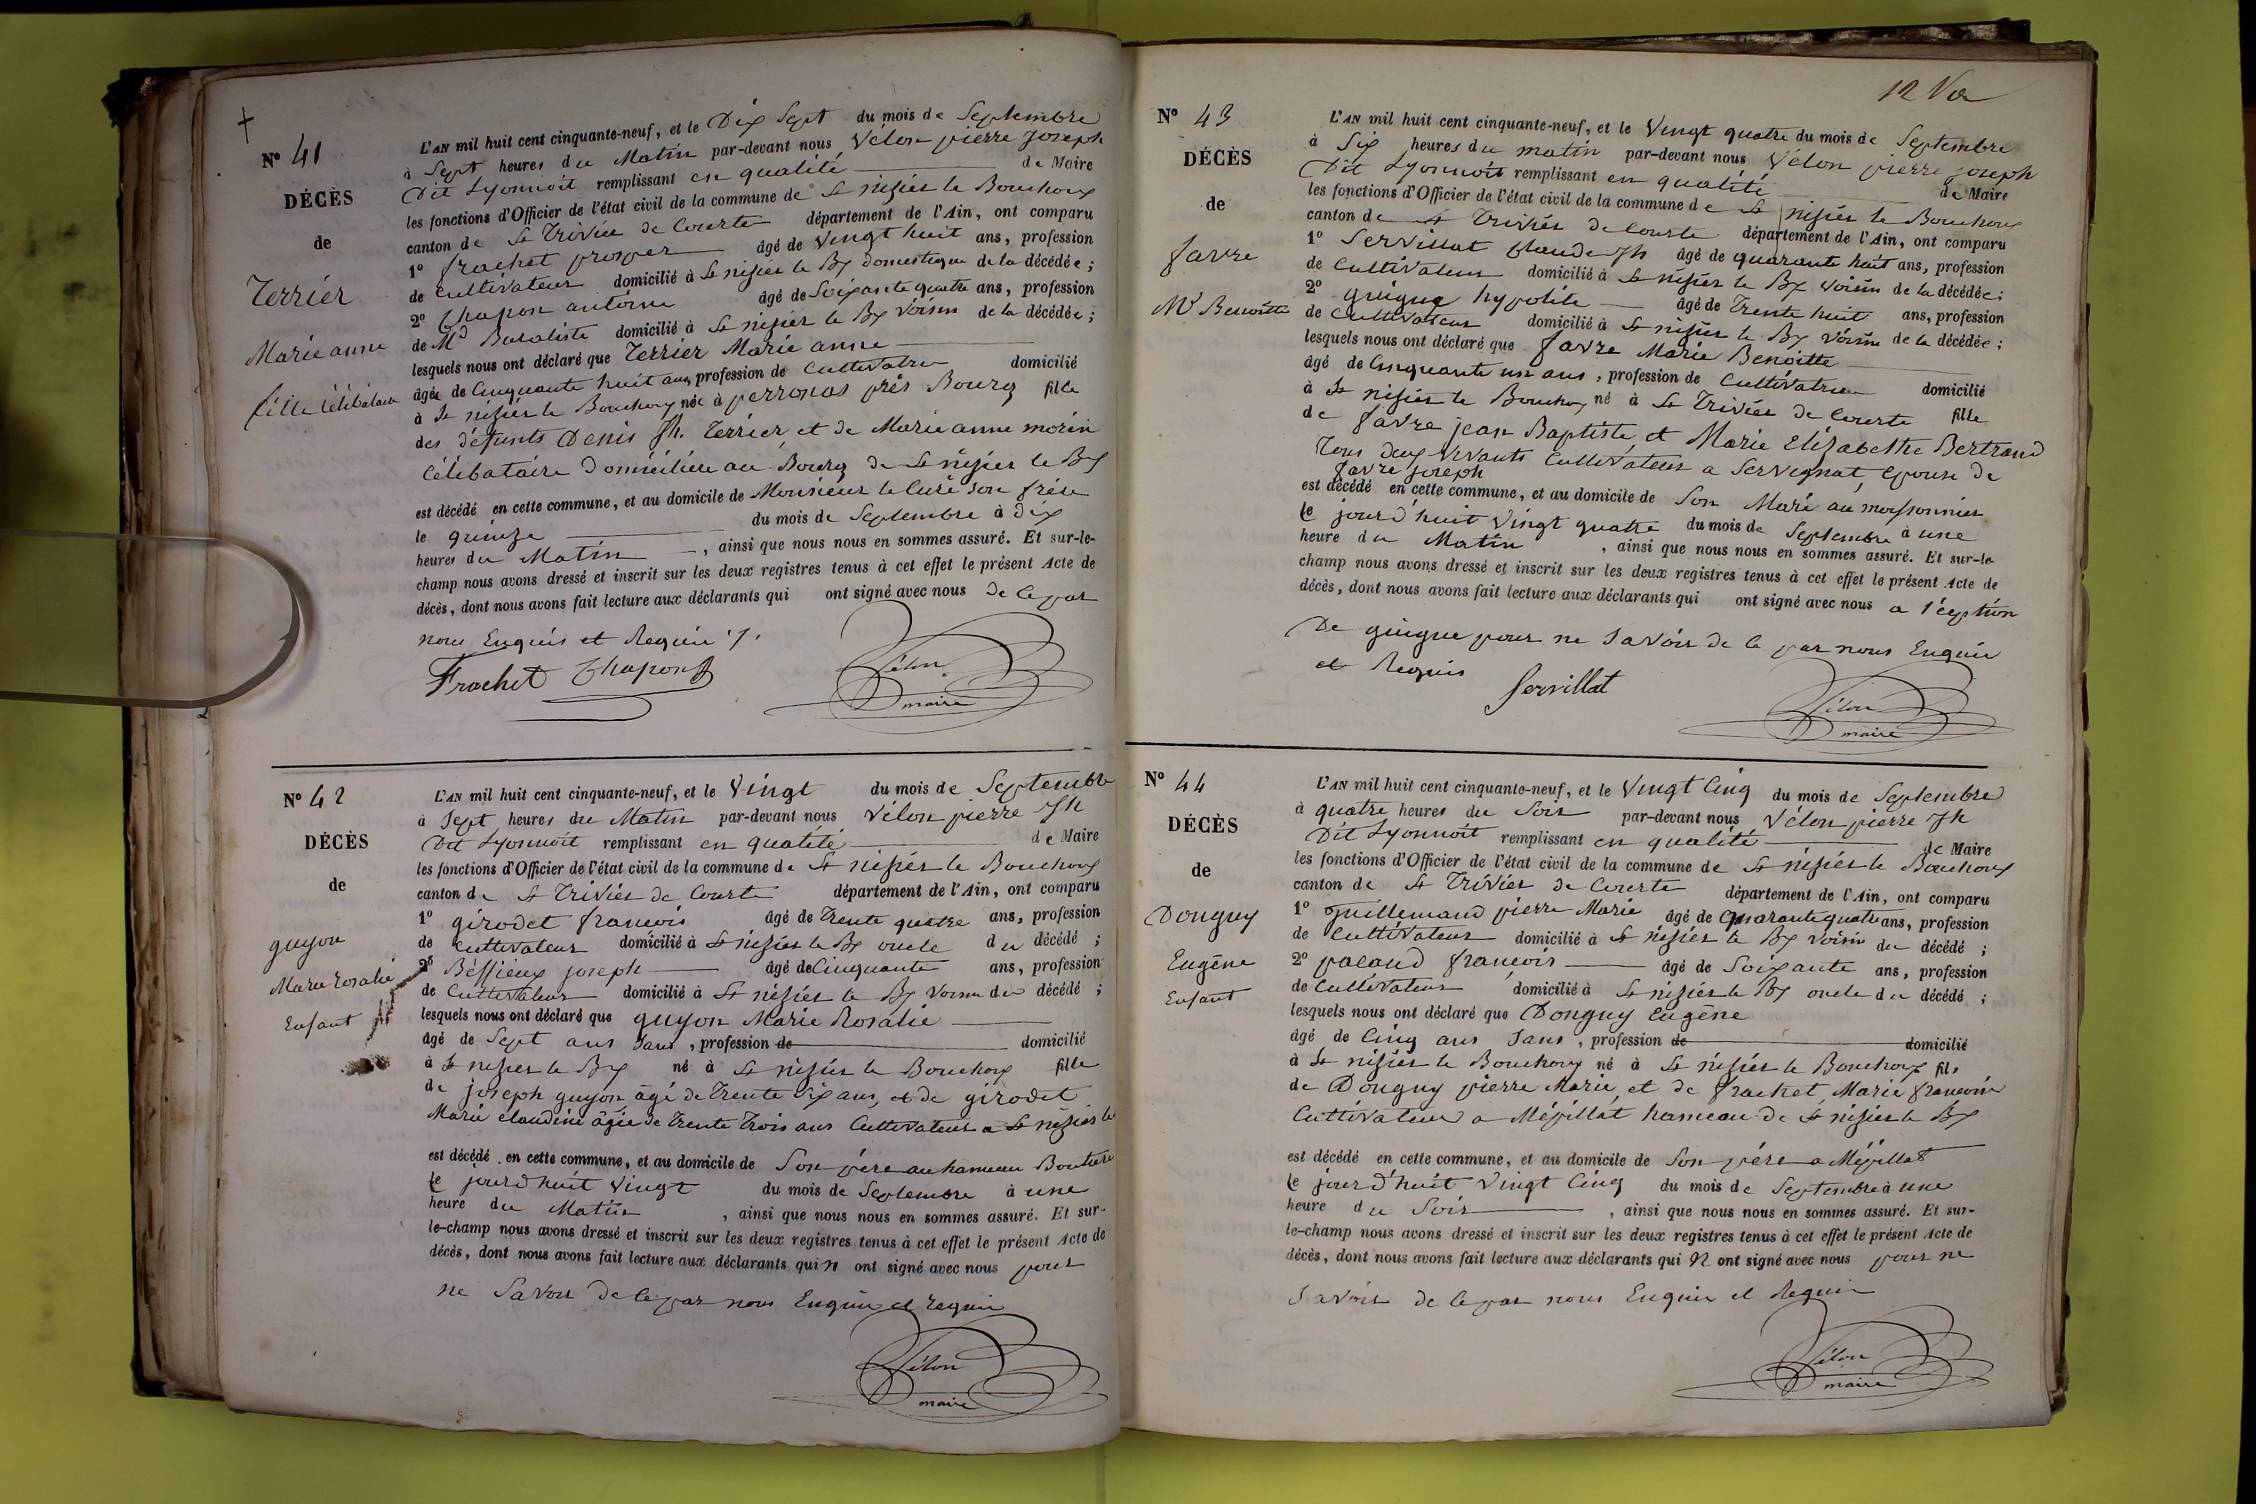 Nº 41
DÉCÈS
de
Terrier
Marie anne
fille Célibataire
L'AN mil huit cent cinquante-neuf, et le Dix Sept du mois de Septembre
à Sept heures du Matin par-devant nous Vélon pierre Joseph
Dit Lyonnoit remplissant en qualité de Maire
les fonctions d'Officier de l'état civil de la commune de St nisier le Bouchoux
canton de St Trivier de Courte département de l'Ain, ont comparu
1º frachet prosper âgé de Vingt huit ans, profession
de Cultivateur domicilié à St nisier le Bx Domestique de la décédée ;
2º Chapon antoine âgé de Soixante quatre ans, profession
de Md Buraliste domicilié à St nisier le Bx Voisin de la décédée ;
lesquels nous ont déclaré que Terrier Marie anne
âgée de Cinquante huit ans, profession de Cultivatrice domicilié
à St nisier le Bouchoux née à perronas près Bourg fille
des défunts Denis Jh. Terrier, et de Marie anne morin
Célibataire Domiciliée au Bourg de St nisier le Bx
est décédé en cette commune, et au domicile de Monsieur le Curé Son frère
le quinze du mois de Septembre à dix
heures du Matin , ainsi que nous nous en sommes assuré. Et sur-le-
champ nous avons dressé et inscrit sur les deux registres tenus à cet effet le présent Acte de
décès, dont nous avons fait lecture aux déclarants qui ont signé avec nous de ce par
nous Enquis et Requis ./.
Frachet Chapon
Vélon
maire
Nº 42
DÉCÈS
de
guyon
Marie rosalie
Enfant
L'AN mil huit cent cinquante-neuf, et le Vingt du mois de Septembre
à Sept heures du Matin par-devant nous Vélon pierre Jh
Dit Lyonnoit remplissant en qualité de Maire
les fonctions d'Officier de l'état civil de la commune de St nisier le Bouchoux
canton de St Trivier de Courte département de l'Ain, ont comparu
1º girodet francois âgé de Trente quatre ans, profession
de Cultivateur domicilié à St nisier le Bx oncle du décédé ;
2º Béssieux joseph âgé de Cinquante ans, profession
de Cultivateur domicilié à St nisier le Bx Voisin du décédé ;
lesquels nous ont déclaré que guyon Marie Rosalie
âgé de Sept ans Sans, profession de domicilié
à St nisier le Bx né à St nisier le Bouchoux fille
de joseph guyon âgé de Trente Six ans, et de girodet
Marie claudine âgée de Trente Trois ans Cultivateurs a St nisier le
est décédé en cette commune, et au domicile de Son père au hameau
le jourd'huit Vingt du mois de Septembre à une
heure du Matin , ainsi que nous nous en sommes assuré. Et sur-
le-champ nous avons dressé et inscrit sur les deux registres tenus à cet effet le présent Acte de
décès, dont nous avons fait lecture aux déclarants qui n ont signé avec nous pour
ne Savoir de ce par nous Enquis et requis
Vélon
maire
12
Nº 43
DÉCÈS
de
favre
Mie Benoitte
L'AN mil huit cent cinquante-neuf, et le Vingt quatre du mois de Septembre
à Six heures du matin par-devant nous Vélon pierre joseph
Dit Lyonnoit remplissant en qualité de Maire
les fonctions d'Officier de l'état civil de la commune de St nisier le Bouchoux
canton de St Trivier de Courte département de l'Ain, ont comparu
1º Servillat Claude Jh âgé de quarante huit ans, profession
de Cultivateur domicilié à St nisier le Bx Voisin de la décédée ;
2º guigue hypolite âgé de Trente huit ans, profession
de Cultivateur domicilié à St nisier le Bx Voisin de la décédée ;
lesquels nous ont déclaré que favre Marie Benoitte
âgé de Cinquante un ans, profession de Cultivatrice domicilié
à St nisier le Bouchoux né à St Trivier de Courte fille
de favre jean Baptiste, et Marie Elizabethe Bertrand
Tous deux Vivants Cultivateur a Servignat, Epouse de
favre joseph
est décédé en cette commune, et au domicile de Son Mari au moissonnier
le jourd'huit Vingt quatre du mois de Septembre à une
heure du Matin , ainsi que nous nous en sommes assuré. Et sur-le-
champ nous avons dressé et inscrit sur les deux registres tenus à cet effet le présent Acte de
décès, dont nous avons fait lecture aux déclarants qui ont signé avec nous a l'éxption
De guigue pour ne Savoir de ce par nous Enquis
et Requis
Servillat
Vélon
maire
Nº 44
DÉCÈS
de
Donguy
Eugène
Enfant
L'AN mil huit cent cinquante-neuf, et le Vingt Cinq du mois de Septembre
à quatre heures du Soir par-devant nous Vélon pierre Jh
Dit Lyonnoit remplissant en qualité de Maire
les fonctions d'Officier de l'état civil de la commune de St nisier le Bouchoux
canton de St Trivier de Courte département de l'Ain, ont comparu
1º Guillemaud pierre Marie âgé de quarante quatre ans, profession
de Cultivateur domicilié à St nisier le Bx Voisin du décédé ;
2º pacaud françois âgé de Soixante ans, profession
de Cultivateur domicilié à St nisier le Bx oncle du décédé ;
lesquels nous ont déclaré que Donguy Eugène
âgé de Cinq ans Sans, profession de domicilié
à St nisier le Bouchoux né à St nisier le Bouchoux fils
de Donguy pierre Marie, et de frachet Marie françoise
Cultivateur a Mépillat hameau de St nisier le Bx
est décédé en cette commune, et au domicile de Son père a Mépillat
le jourd'huit Vingt Cinq du mois de Septembre à une
heure du Soir , ainsi que nous nous en sommes assuré. Et sur-
le-champ nous avons dressé et inscrit sur les deux registres tenus à cet effet le présent Acte de
décès, dont nous avons fait lecture aux déclarants qui n ont signé avec nous pour ne
Savoir de ce par nous Enquis et Requis
Vélon
maire